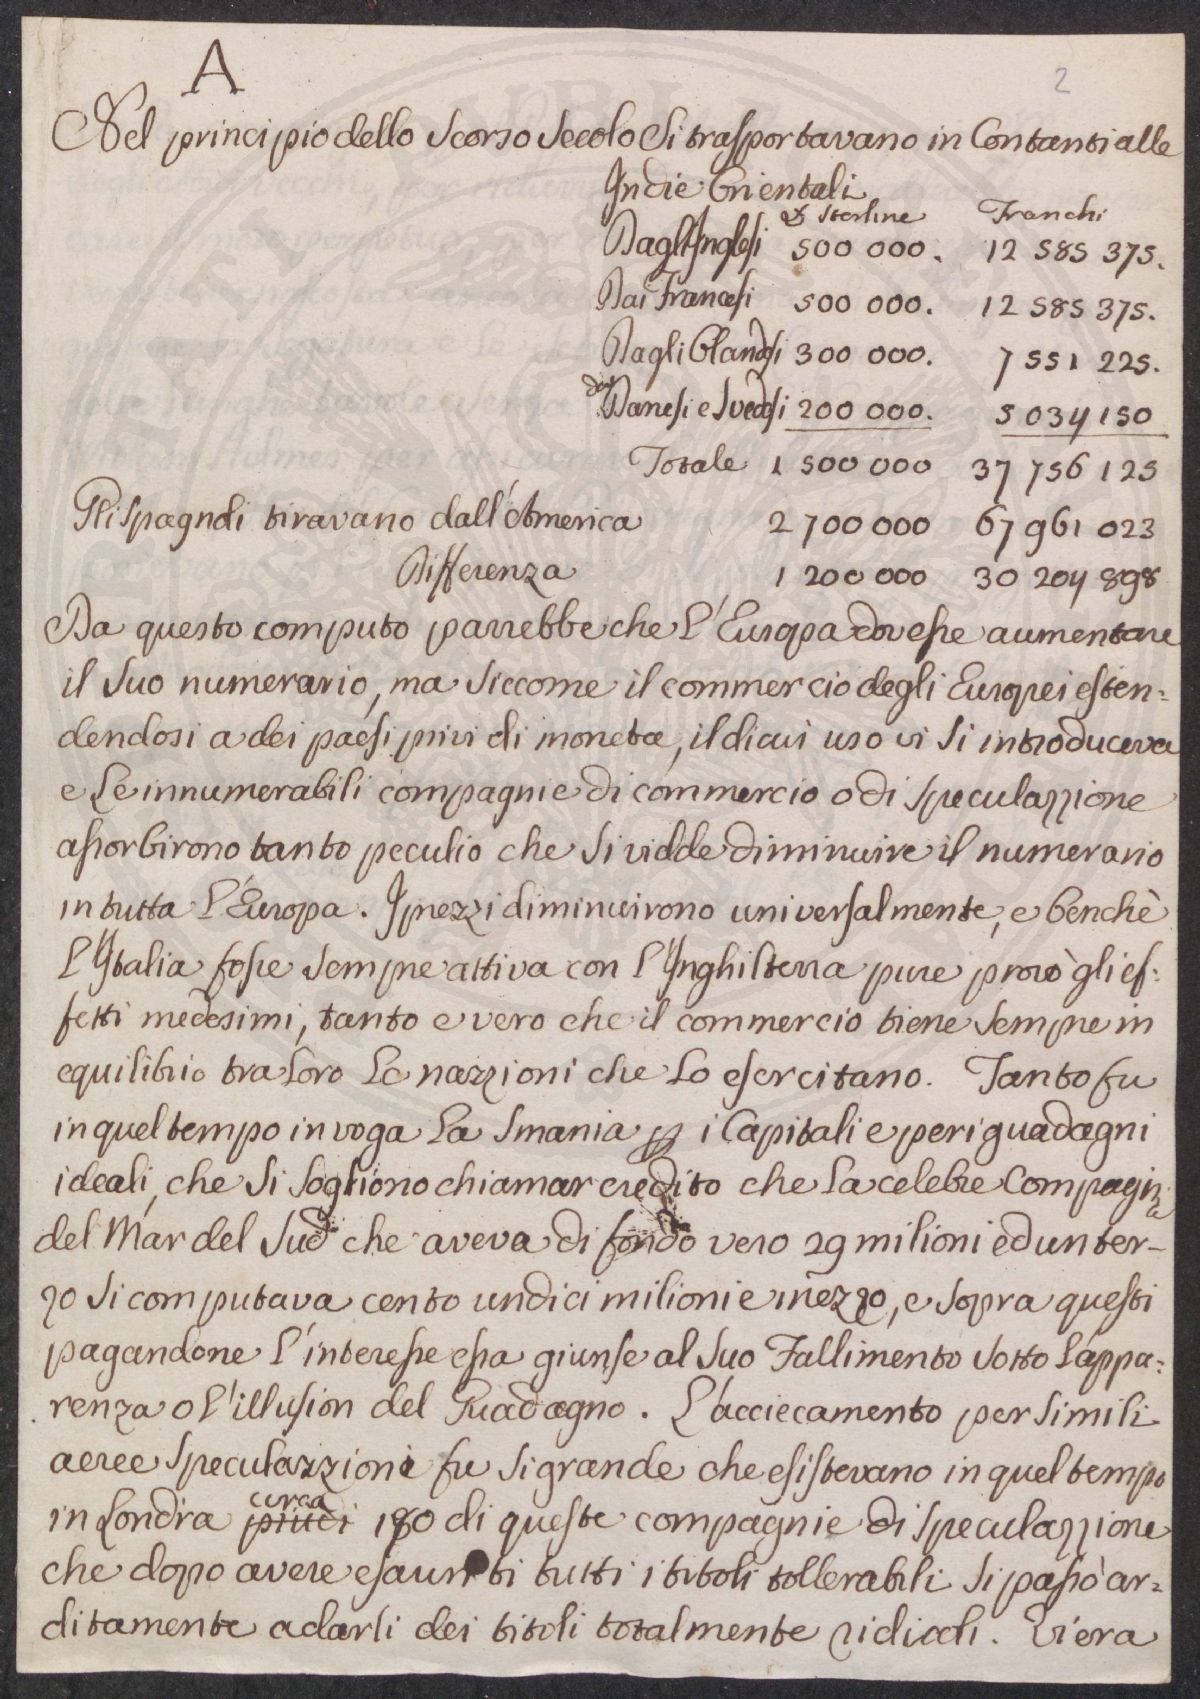 A
2
Nel principio dello scorso secolo si trasportavano in Contanti alle
Indie Orientali
£ Sterline Franchi
Dagl'Inglesi 500 000. 12 585 375.
Dai Francesi 500 000. 12 585 375.
Dagli Olandesi 300 000. 7 551 225.
dai Danesi e Svedesi 200 000. 5 034 150
Totale 1 500 000 37 756 125
Gli spagnoli tiravano dall'America 2 700 000 67 961 023
Differenza 1 200 000 30 204 898
Da questo computo parrebbe che l'Europa dovesse aumentare
il suo numerario, ma siccome il commercio degli Europei esten=
dendosi a dei paesi privi di moneta, il di cui uso vi si introduceva
e le innumerabili compagnie di commercio o di speculazzione
assorbirono tanto peculio che si vidde diminuire il numerario
in tutta l'Europa. I prezzi diminuirono universalmente, e benchè
l'Italia fosse sempre attiva con l'Inghilterra pure provò gli ef=
fetti medesimi, tanto e vero che il commercio tiene sempre in
equilibrio tra loro le nazzioni che lo esercitano. Tanto fu
in quel tempo in voga la smania p i Capitali e per i guadagni
ideali, che si sogliono chiamar credito che la celebre Compagnia
del Mar del Sud che aveva di fondo vero 29 milioni ed un ter-
zo si computava cento undici milioni e mezzo, e sopra questi
pagandone l'interesse essa giunse al suo Fallimento sotto l'appa=
renza o l'illusion del Guadagno. L'acciecamento per simili
aeree speculazzioni fu si grande che esistevano in quel tempo
in Londra piudi circa 180 di queste compagnie di speculazzione
che dopo avere esauriti tutti i titoli tollerabili si passò ar=
ditamente a darli dei titoli totalmente ridicoli. Vi era